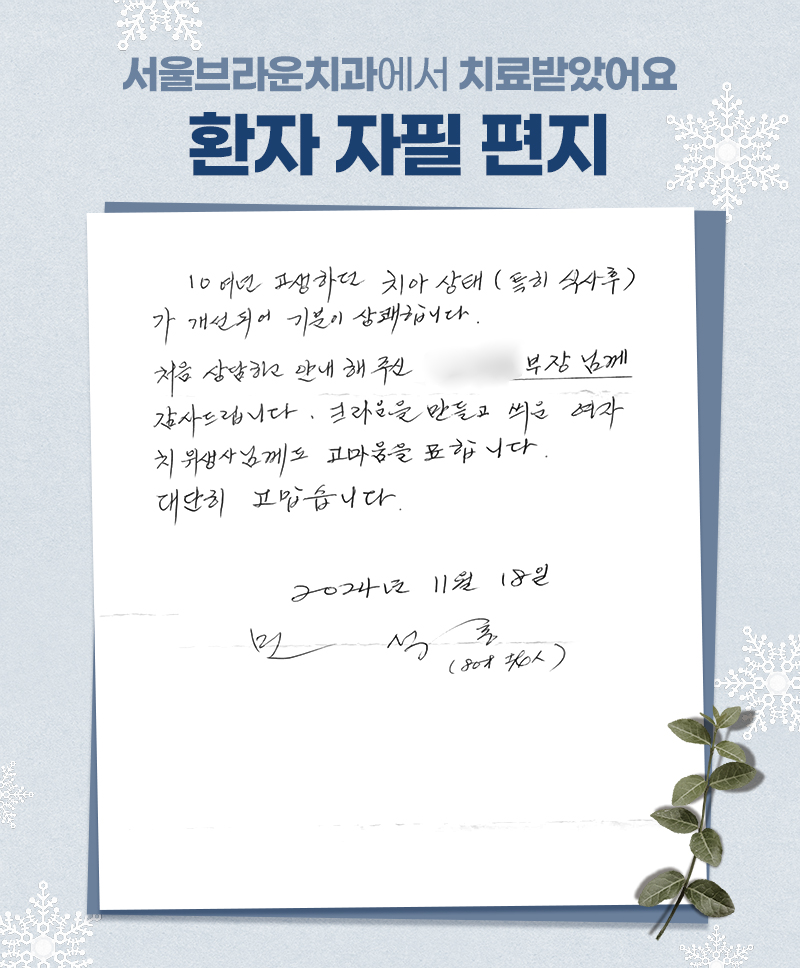 서울브라운치과에서 치료받았어요
환자 자필 편지
10여년 고생하던 치아 상태 (특히 식사후)
가 개선되어 기분이 상쾌합니다.
처음 상담하고 안내 해 주신 부장님께
감사드립니다. 크라운을 만들고 씌운 여자
치위생사님께도 고마움을 표합니다.
대단히 고맙습니다.
2024년 11월 18일
민 석
(80세